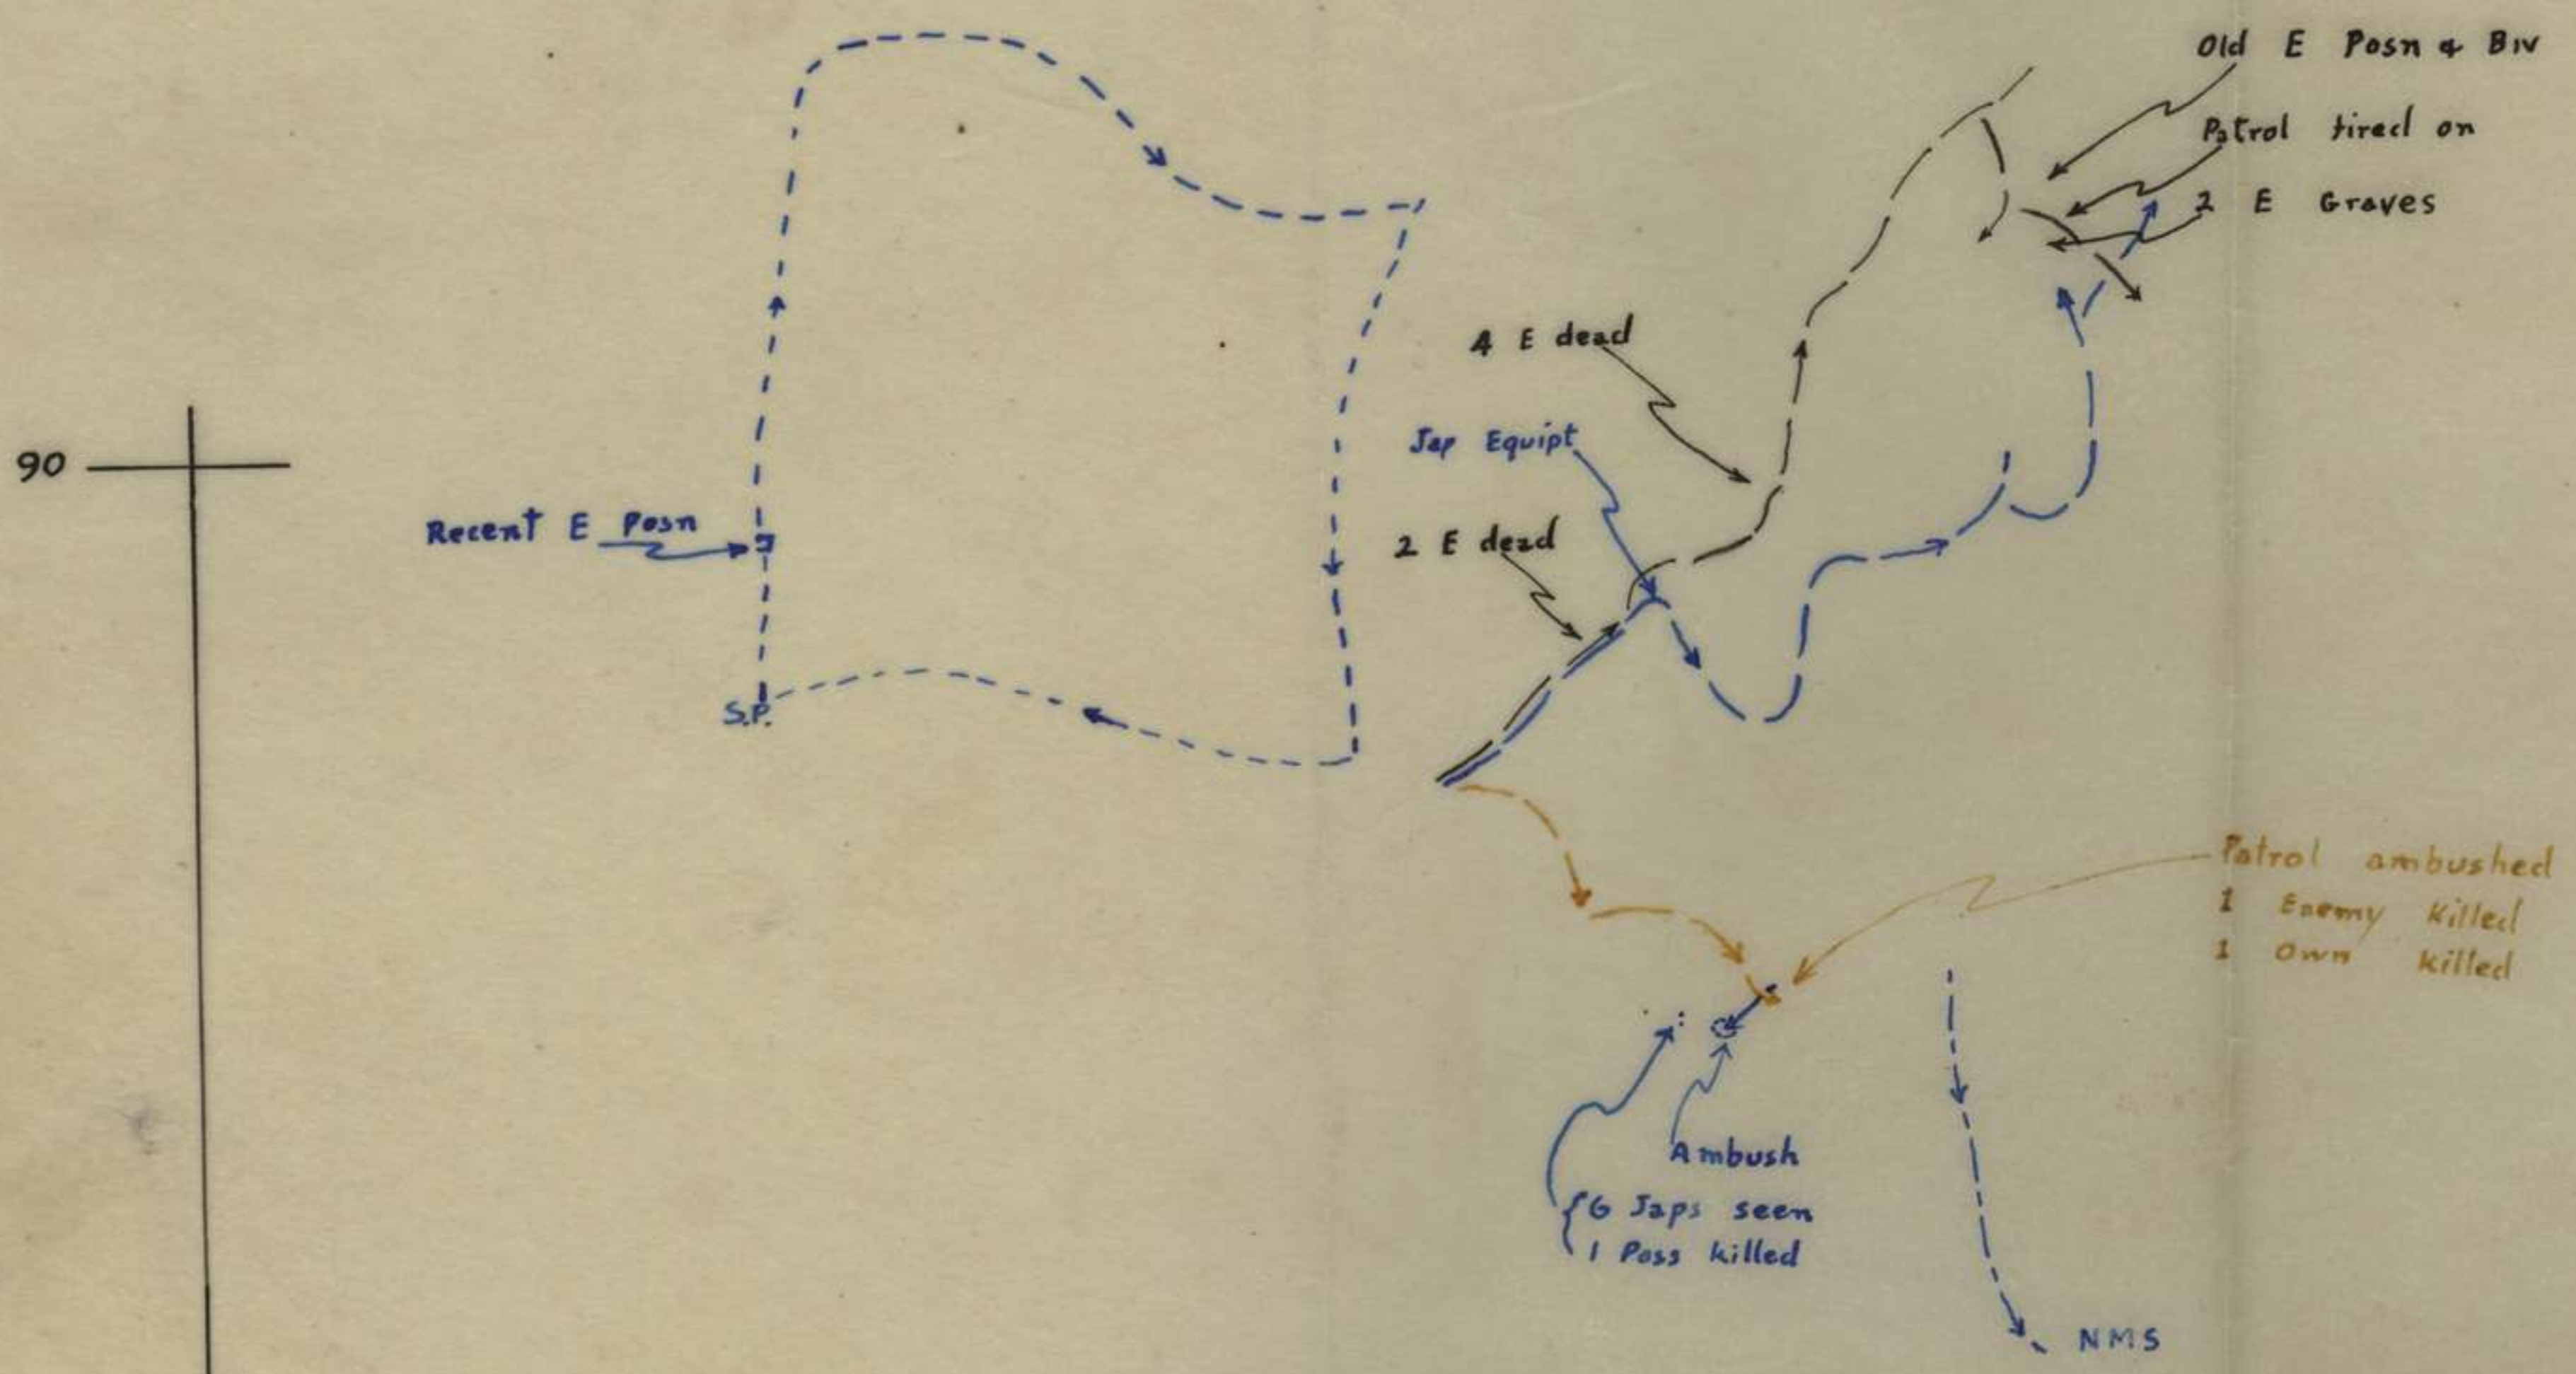 Old E Posn & Biv
Patrol fired on
2 E Graves
4 E dead
Jap Equipt
90
Recent E Posn
2 E dead
S.P.
Patrol ambushed
1 Enemy Killed
1 Own Killed
Ambush
6 Japs seen
1 Poss killed
NMS